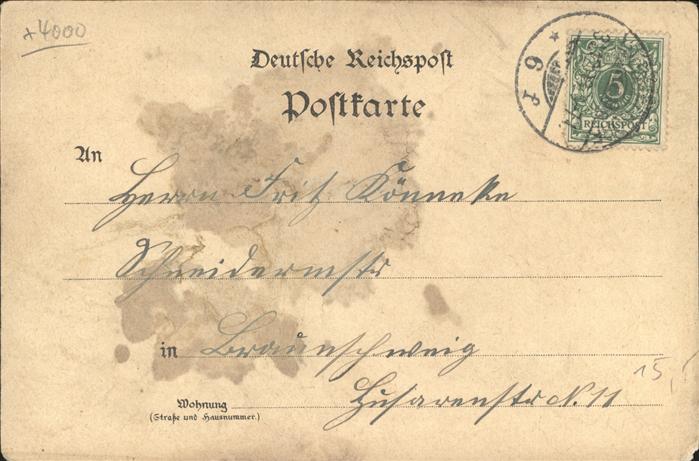 +4000
Deutsche Reichspost
Postkarte
5
REICHSPOST
An
Herrn Fritz Könneke
Schneidermstr
in Braunschweig
Wohnung
(Straße und Hausnummer.)
Husarenstr N. 11
15,